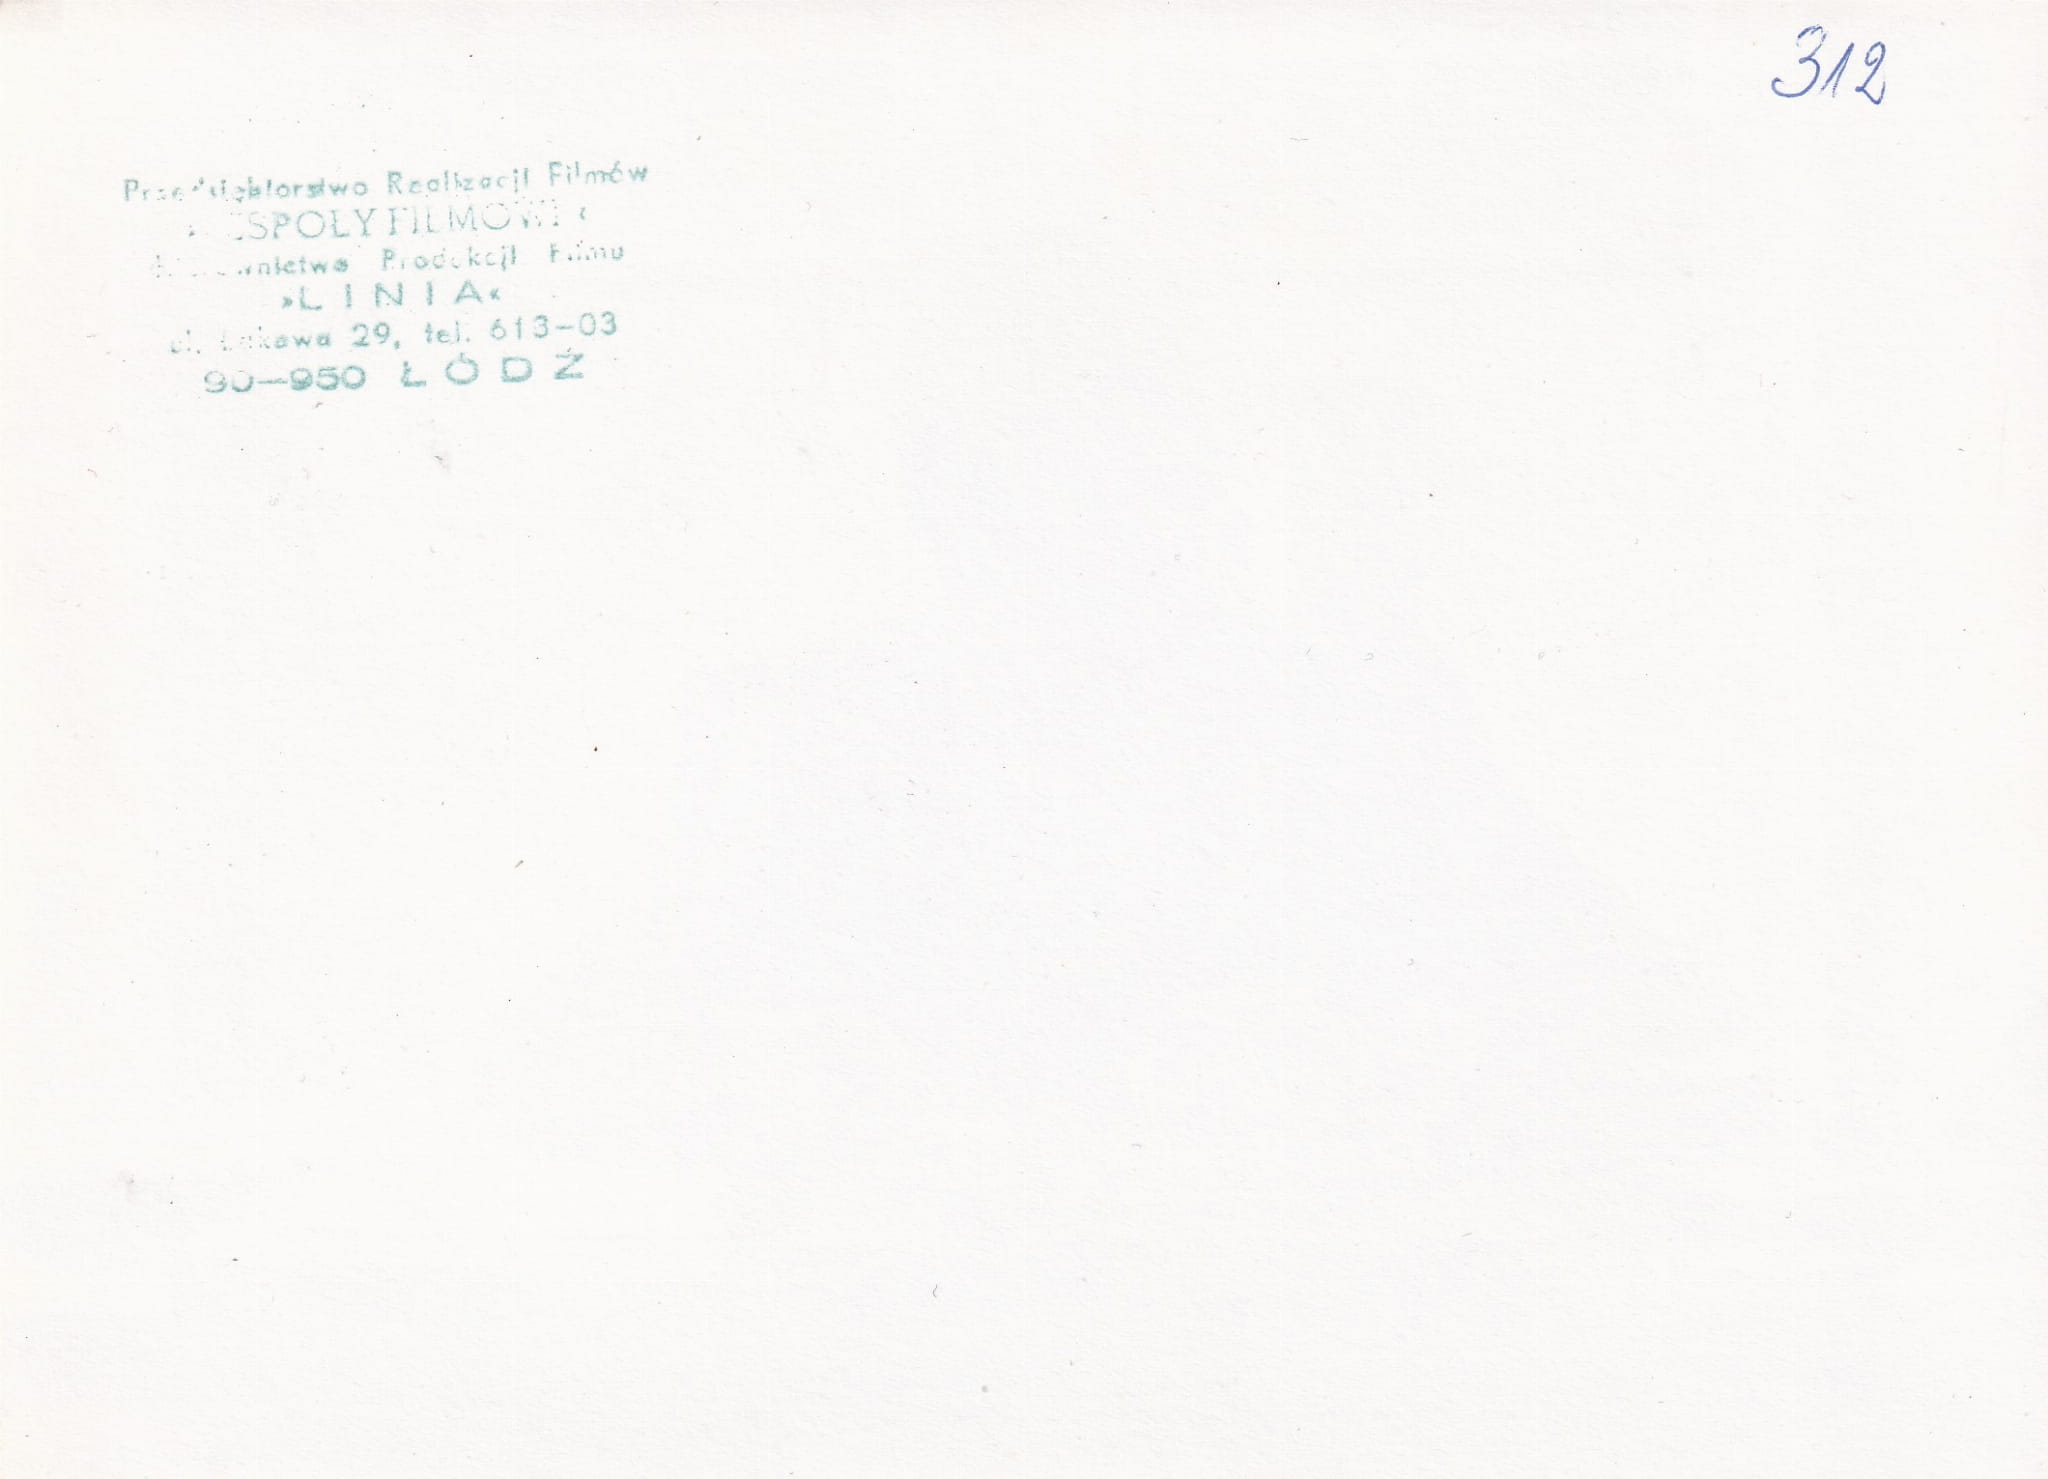 312
Przedsiębiorstwo Realizacji Filmów
ZESPOŁY FILMOWE
Kierownictwo Produkcji Filmu
»LINIA«
ul. Łąkowa 29, tel. 613-03
90-950 ŁÓDŹ